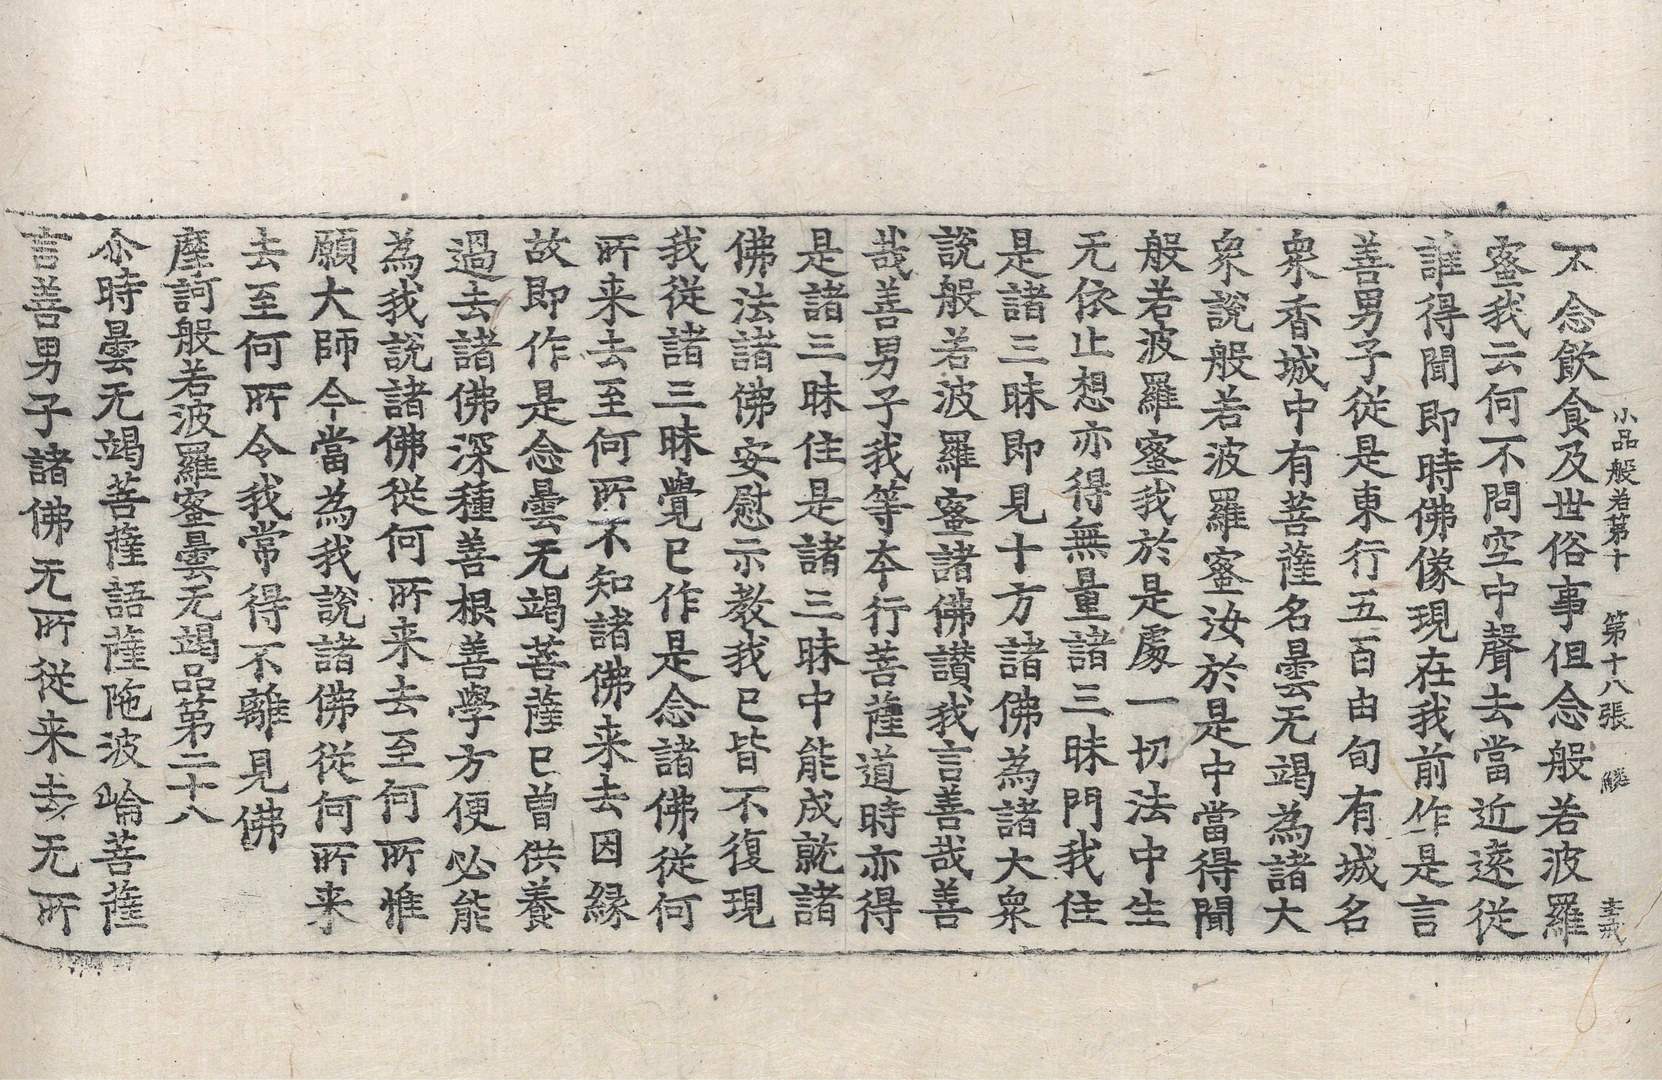 小品般若第十 第十八張
不念飲食及世俗事但念般若波羅
蜜我云何不問空中聲去當近遠從
誰得聞即時佛像現在我前作是言
善男子從是東行五百由旬有城名
衆香城中有菩薩名曇无竭為諸大
衆說般若波羅蜜汝於是中當得聞
般若波羅蜜我於是處一切法中生
无依止想亦得無量諸三昧門我住
是諸三昧即見十方諸佛為諸大衆
說般若波羅蜜諸佛讃我言善哉善
哉善男子我等夲行菩薩道時亦得
是諸三昧住是諸三昧中能成就諸
佛法諸佛安慰示教我已皆不復現
我從諸三昧覺已作是念諸佛從何
所来去至何所不知諸佛来去因縁
故即作是念曇无竭菩薩已曽供養
過去諸佛深種善根善學方便必能
為我說諸佛從何所来去至何所惟
願大師今當為我說諸佛從何所来
去至何所令我常得不離見佛
摩訶般若波羅蜜曇无竭品第二十八
尒時曇无竭菩薩語薩陁波崘菩薩
言善男子諸佛无所從来去无所